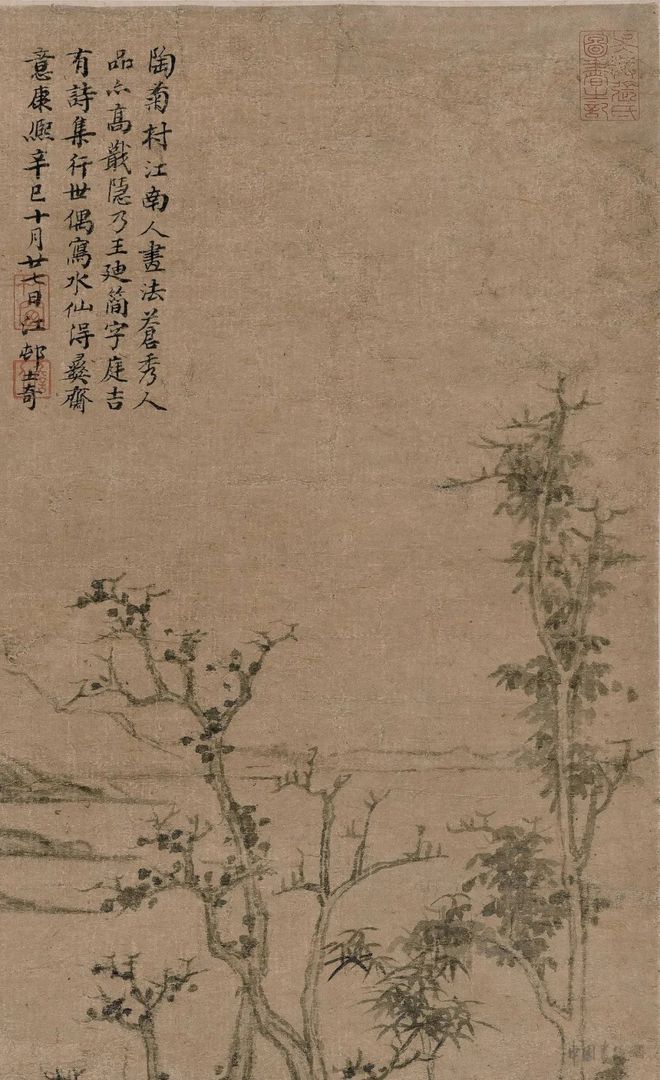 陶菊村江南人畫法蒼秀人
品亦高蕺隱乃王廸簡字庭吉
有詩集行世偶寫水仙得彝齋
意康熙辛巳十月廿七日江邨士奇
張氏
圖書之記
中國